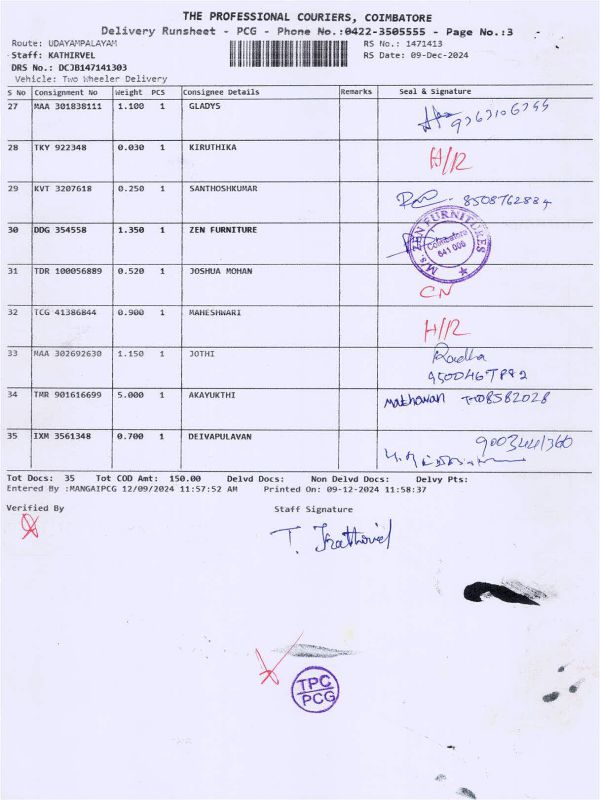 THE PROFESSIONAL COURIERS, COIMBATORE
Delivery Runsheet - PCG - Phone No.:0422-3505555 - Page No.:3
Route: UDAYAMPALAYAM RS No.: 1471413
Staff: KATHIRVEL RS Date: 09-Dec-2024
DRS No.: DCJB147141303
Vehicle: Two Wheeler Delivery
S No Consignment No Weight PCS Consignee Details Remarks Seal & Signature
27 MAA 301838111 1.100 1 GLADYS
28 TKY 922348 0.030 1 KIRUTHIKA H/R
29 KVT 3207618 0.250 1 SANTHOSHKUMAR 8508762884
30 DDG 354558 1.350 1 ZEN FURNITURE M/s. ZEN FURNITURES Coimbatore 641 006
31 TDR 100056889 0.520 1 JOSHUA MOHAN CN
32 TCG 41386844 0.900 1 MAHESHWARI H/R
33 MAA 302692630 1.150 1 JOTHI Radha
34 TMR 901616699 5.000 1 AKAYUKTHI
35 IXM 3561348 0.700 1 DEIVAPULAVAN 9003441360
Tot Docs: 35 Tot COD Amt: 150.00 Delvd Docs: Non Delvd Docs: Delvy Pts:
Entered By :MANGAIPCG 12/09/2024 11:57:52 AM Printed On: 09-12-2024 11:58:37
Verified By Staff Signature
T. Kathirvel
TPC
PCG